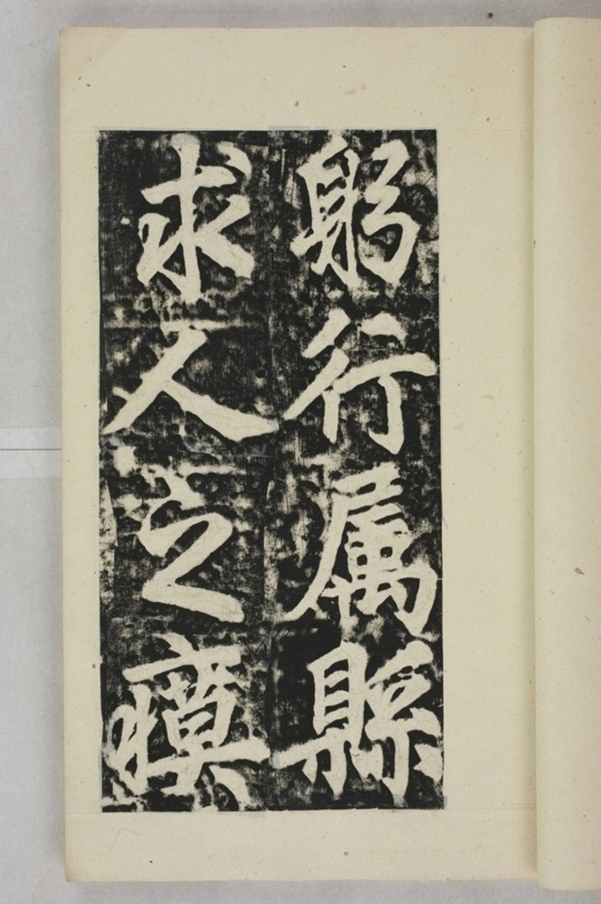 躬行属縣
求人之瘼